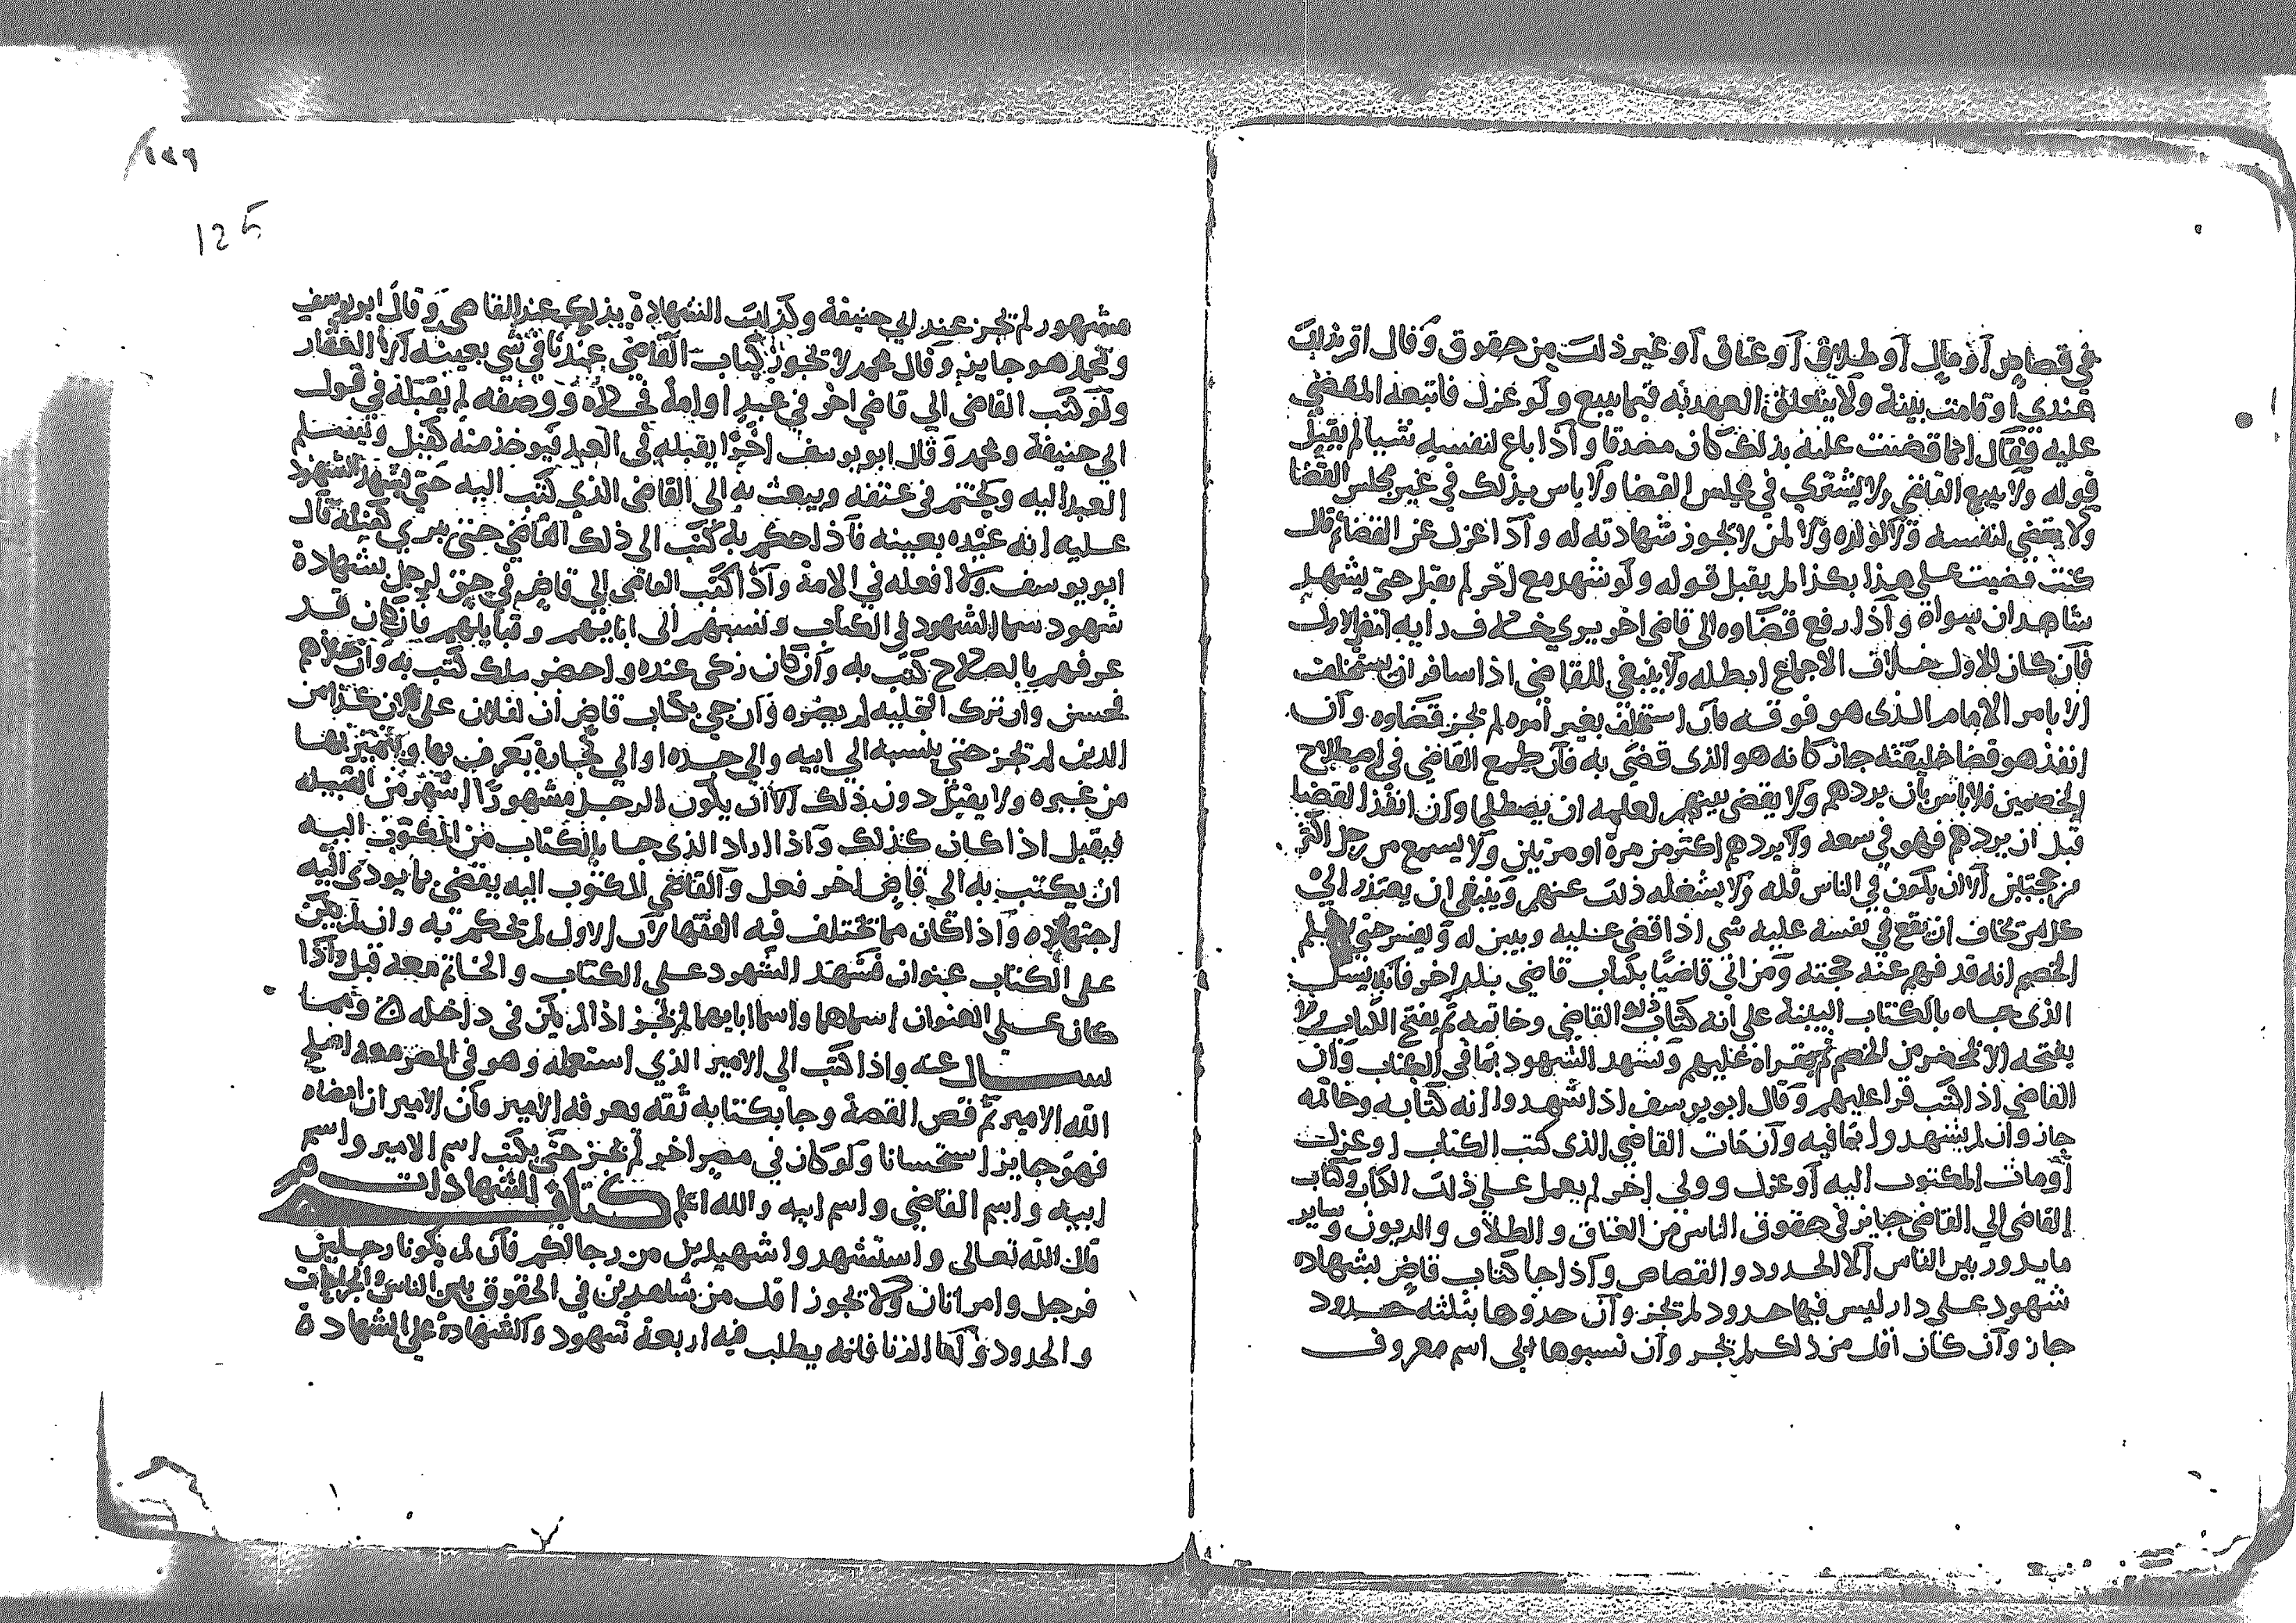 في قصاص او مال او طلاق او عتاق او غير ذلك من حقوق وقال اقر بذلك
عندي او قامت بينة ولا يتعلق العهدة به فيما يبيع ولو عزل فاتبعه المقضي
عليه فقال انما قضيت عليه بذلك كان مصدقا واذا باع لنفسه شيا لم يقبل
قوله ولا يبيع القاضي ولا يشتري في مجلس القضا ولا باس بذلك في غير مجلس القضا
ولا يقضي لنفسه ولا لولده ولا لمن لا تجوز شهادته له واذا عزل عن القضا ثم قال
كنت قضيت على هذا بكذا لم يقبل قوله ولو شهد مع اخر لم يقبل حتى يشهد
شاهدان سواه واذا رفع قضاوه الى قاضي اخر يرى خلاف رايه انفذ الاول
فان كان الاول خلاف الاجماع ابطله ولا ينبغي للقاضي اذا سافر ان يستخلف
الا بامر الامام الذى هو فوقه فان استخلف بغير امره لم تجز قضاوه وان
انفذ هو قضا خليفته جاز كانه هو الذى قضى به فان طمع القاضي في اصطلاح
الخصمين فلا باس بان يردهم ولا يقضى بينهم لعلهم ان يصطلحا وان انفذ القضا
قبل ان يردهم فهو في سعه ولا يردهم اكثر من مرة او مرتين ولا يسمع من رجل اكثر
من حجتين الا ان يكون في الناس قله ولا يشغله ذلك عنهم وينبغي ان يعتذر الى
كل من يخاف ان يقع في نفسه عليه شي اذا قضى عليه ويبين له ويفسر حتى يعلم
الخصم انه قد فهم عنه حجته ومن اتى قاضيا بكتاب قاضي بلد اخر فانه يسل
الذى جاه بالكتاب البينة على انه كتاب ذلك القاضي وخاتمه ثم يفتح الكتاب ولا
يفتحه الا بمحضر من الخصم ثم يقراه عليهم وتشهد الشهود بما في الكتاب وان
القاضي اذا كتب قرا عليهم وقال ابو يوسف اذا شهدوا انه كتابه وخاتمه
جاز وان لم يشهدوا بما فيه وان مات القاضي الذى كتب الكتاب او عزل
او مات المكتوب اليه او عزل وولى اخر لم يعمل على ذلك الكتاب وكتاب
القاضى الى القاضى جايز في حقوق الناس من العتاق والطلاق والديون وساير
ما يدور بين الناس الا الحدود والقصاص واذا جا كتاب قاض بشهاده
شهود على دار ليس فيها حدود لم تجز وان حدوها بثلثه حدود
جاز وان كان اقل من ذلك لم تجز وان نسبوها الى اسم معروف
125
مشهور لم تجز عند ابي حنيفة وكذلك الشهادة بذلك عند القاضي وقال ابو يوسف
ومحمد هو جايز وقال محمد لا تجوز كتاب القاضي عندنا في شي بعينه الا العقار
ولو كتب القاضى الى قاضي اخر في عبد او امة في حلاه ووصفه لم يقبله في قول
ابي حنيفة ومحمد وقال ابو يوسف اخرا يقبله في العبد فيوخذ منه كفيل ويسلم
العبد اليه ويختم في عنقه ويبعث به الى القاضى الذي كتب اليه حتى يشهد الشهود
عليه انه عبده بعينه فاذا حكم به كتب الى ذلك القاضي حتى يبري كفيله قال
ابو يوسف ولا افعله في الامة واذا كتب القاضى الى قاض في حق لرجل بشهادة
شهود سما الشهود في الكتاب ونسبهم الى ابايهم وقبايلهم فان كان قد
عرفهم بالصلاح كتب به وان كان زكى عنده واحضر ذلك كتب به وان حلاهم
فحسن وان ترك التحليه لم يضره وان جي بكتاب قاض ان لفلان على فلان كذا من
الدين لم تجز حتى ينسبه الى ابيه والى جده او الى تجارة يعرف بها ويتميز بها
من غيره ولا يقبل دون ذلك الا ان يكون الرجل مشهورا اشهر من القبيله
فيقبل اذا كان كذلك واذا اراد الذى جا بالكتاب من المكتوب اليه
ان يكتب به الى قاض اخر فعل والقاضي المكتوب اليه يقضى بما يودى اليه
اجتهاده واذا كان مما تختلف فيه الفقها لان الاول لم تحكم به وان لم يكن
على الكتاب عنوان فشهد الشهود على الكتاب والخاتم معه قبل واذا
كان على العنوان اسماهما واسما ابايهما لم تجز اذا لم يكن في داخله
سال عنه واذا كتب الى الامير الذي استعمله وهو في المصر معه اصلح
الله الامير ثم قص القصة وجا بكتابه ثقه يعرفه الامير فان الامير ان امضاه
فهو جايز استحسانا ولو كان في مصر اخر لم تجز حتى يكتب اسم الامير واسم
ابيه واسم القاضي واسم ابيه والله اعلم كتاب الشهادات
قال الله تعالى واستشهدوا شهيدين من رجالكم فان لم يكونا رجلين
فرجل وامراتان ولا تجوز اقل من شاهدين في الحقوق بين الناس والجراحات
والحدود ولا الزنا فانه يطلب فيه اربعة شهود والشهادة على الشهادة